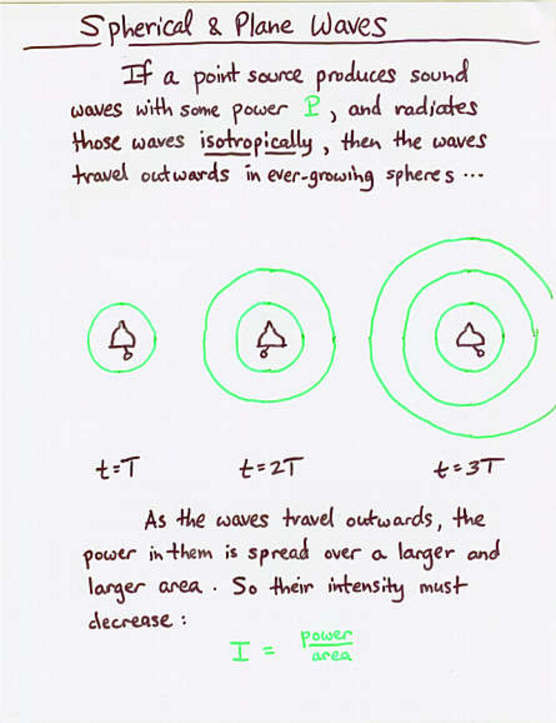 Spherical & Plane Waves
If a point source produces sound
waves with some power P, and radiates
those waves isotropically, then the waves
travel outwards in ever-growing spheres...
t=T t=2T t=3T
As the waves travel outwards, the
power in them is spread over a larger and
larger area. So their intensity must
decrease:
I = power
area